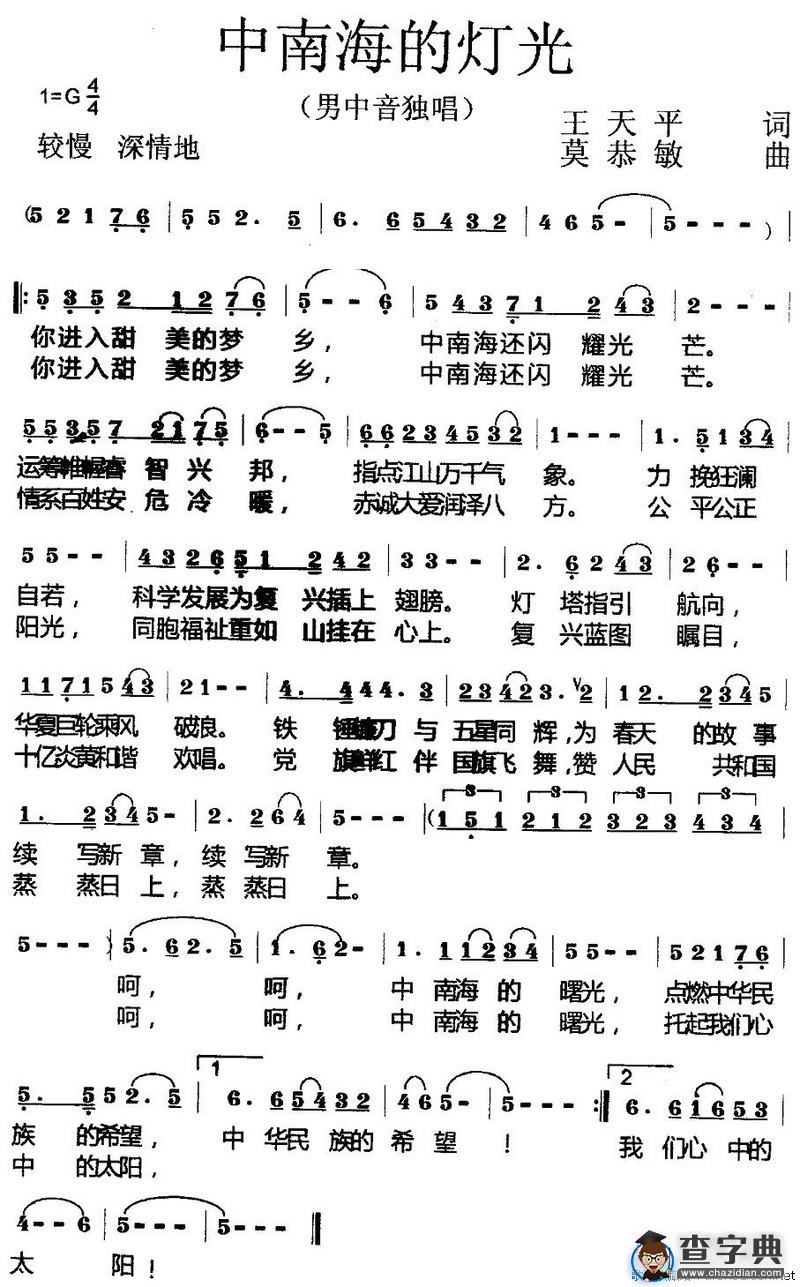 中南海的灯光
1=G 4/4
（男中音独唱）
王天平 词
较慢 深情地
莫恭敏 曲
(5 2 1 7 6 | 5 5 2 . 5 | 6 . 6 5 4 3 2 | 4 6 5 - | 5 - - - ) |
‖: 5 3 5 2 1 2 7 6 | 5 - - 6 | 5 4 3 7 1 2 4 3 | 2 - - - |
你进入甜 美的梦 乡， 中南海还闪 耀光 芒。
你进入甜 美的梦 乡， 中南海还闪 耀光 芒。
5 5 3 5 7 2 1 7 5 | 6 - - 5 | 6 6 2 3 4 5 3 2 | 1 - - - | 1 . 5 1 3 4 |
运筹帷幄睿 智 兴 邦， 指点江山万千气 象。 力 挽狂澜
情系百姓安 危 冷 暖， 赤诚大爱润泽八 方。 公 平公正
5 5 - - | 4 3 2 6 5 1 2 4 2 | 3 3 - - | 2 . 6 2 4 3 | 2 6 - - |
自若， 科学发展为复 兴插上 翅膀。 灯 塔指引 航向，
阳光， 同胞福祉重如 山挂在 心上。 复 兴蓝图 瞩目，
1 1 7 1 5 4 3 | 2 1 - - | 4 . 4 4 4 . 3 | 2 3 4 2 3 . V 2 | 1 2 . 2 3 4 5 |
华夏巨轮乘风 破浪。 铁 锤镰刀 与 五星同 辉，为 春天 的故 事
十亿炎黄和谐 欢唱。 党 旗鲜红 伴 国旗飞 舞，赞 人民 共和国
1 . 2 3 4 5 - | 2 . 2 6 4 | 5 - - - | (1 5 1 2 1 2 3 2 3 4 3 4 |
3 3 3 3
续 写新 章，续 写新 章。
蒸 蒸日 上，蒸 蒸日 上。
5 - - - ) | 5 . 6 2 . 5 | 1 . 6 2 - | 1 . 1 1 2 3 4 | 5 5 - - | 5 2 1 7 6 |
呵， 呵， 中 南海 的 曙光， 点燃中华民
呵， 呵， 中 南海 的 曙光， 托起我们心
1 2
5 . 5 5 2 . 5 | 6 . 6 5 4 3 2 | 4 6 5 - | 5 - - - :‖ 6 . 6 1 6 5 3 |
族 的希望， 中 华民 族的希 望 ！ 我 们心 中的
中 的太阳，
4 - - 6 | 5 - - - | 5 - - - ‖
太 阳！
查字典
www.chazidian.com